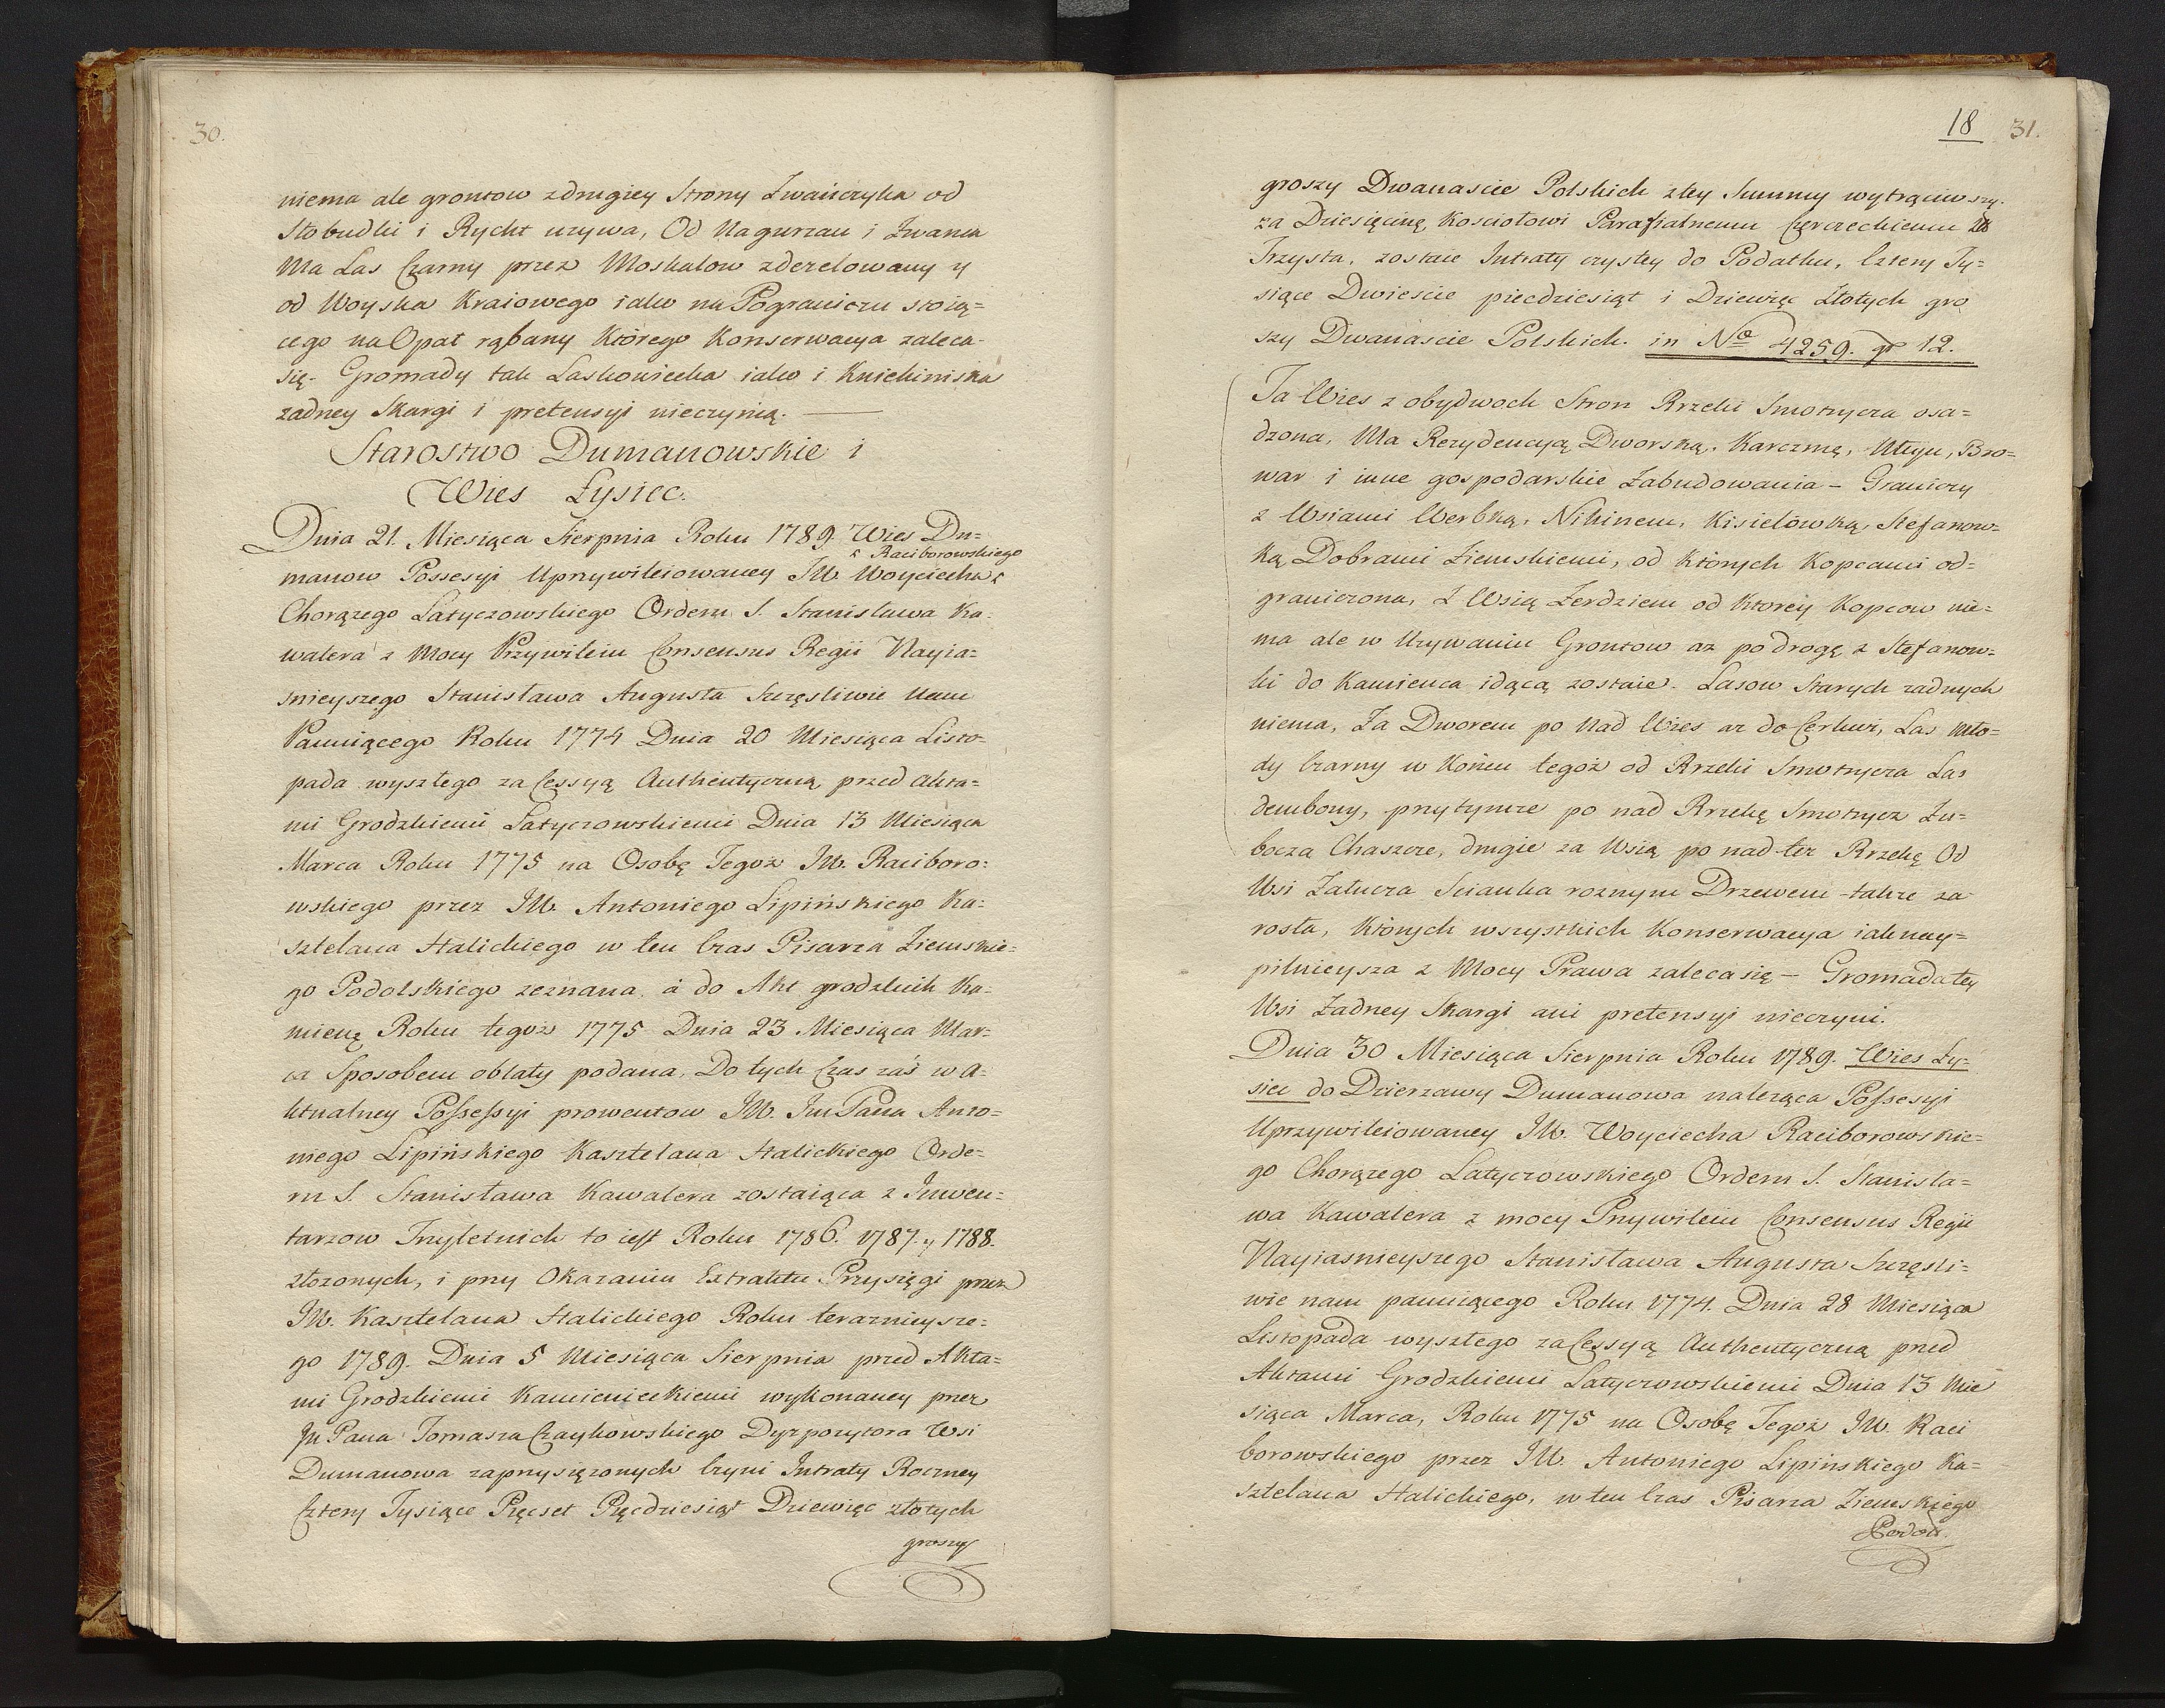 30.
niema ale grontow zdrugiey Strony Zwańczyka od
Stobudki i Rycht uzywa, Od Nagurzan i Zwanca
Ma Las Czarny przez Moskalow zdezelowany y
od Woyska Kraiowego iako na Pograniczu stoią=
cego na Opał rąbany Którego Konserwacya zaleca
się. Gromady tak Laskowiecka iako i Kniehiniska
zadney Skargi i pretensyi nieczynią.
Starostwo Dumanowskie i
Wies Łysiec.
Dnia 21. Miesiąca Sierpnia Roku 1789. Wies Du=
manow Possesyi Uprzywileiowaney JW. Woyciecha Raciborowskiego
Chorązego Latyczowskiego Orderu S. Stanisława Ka=
walera z Mocy Przywileiu Consensus Regii Nayia=
snieyszego Stanisława Augusta Szczęsliwie Nam
Panuiącego Roku 1774 Dnia 20 Miesiąca Listo=
pada wyszłego za Cessyą Authentyczną przed Akta=
mi Grodzkiemi Latyczowskiemi Dnia 13 Miesiąca
Marca Roku 1775 na Osobę Tegoz JW. Raciboro=
wskiego przez JW. Antoniego Lipińskiego Ka=
sztelana Halickiego w ten Czas Pisarza Ziemskie=
go Podolskiego zeznana, a do Akt grodzkich Ka=
mienę Roku tegoz 1775 Dnia 23 Miesiąca Mar=
ca Sposobem oblaty podana. Do tych Czas zaś w A=
ktualney Possessyi prowentow JW. Jm Pana Anto=
niego Lipińskiego Kasztelana Halickiego Orde=
ru S. Stanisława Kawalera zostaiąca z Inwen=
tarzow Trzyletnich to iest Roku 1786. 1787. y 1788.
złozonych, i przy Okazaniu Extraktu Przysięgi przez
JW. Kasztelana Halickiego Roku terazniejsze=
go 1789. Dnia 5 Miesiąca Sierpnia przed Akta=
mi Grodzkiemi Kamienieckiemi wykonaney przez
Jm Pana Tomasza Czaykowskiego Dyzpozytora Wsi
Dumanowa zaprzysięzonych Czyni Intraty Roczney
Cztery Tysiące Pięcset Pięcdziesiąt Dziewięc złotych
groszy
18 31.
groszy Dwanascie Polskich z tey Summy wytrąciwszy.
za Dziesięcinę Kosciołowi Parafialnemu Czerczeckiemu Zł
Trzysta, zostaie Intraty czystey do Podatku, Cztery Ty=
siące Dwiescie piecdziesiąt i Dziewięc Złotych gro
szy Dwanascie Polskich. in No 4259. gr 12.
Ta Wies z obydwoch Stron Rzeki Smotrycza osa=
dzona, Ma Rezydencyą Dworską, Karczmę, Młyn, Bro=
war i inne gospodarskie Zabudowania – Graniczy
z Wsiami Werbką, Nihinem, Kisielówką, Stefanow=
ką Dobrami Ziemskiemi, od Których Kopcami od=
graniczona, Z Wsią Zerdziem od Ktorey Kopcow nie=
ma ale w Uzywaniu Grontow az po drogę z Stefanow=
ki do Kamienca idącą zostaie. Lasow Starych zadnych
niema, Za Dworem po Nad Wies az do Cerkwi, Las Mło=
dy Czarny w Końcu tegoz od Rzeki Smotrycza Las
dembowy, przytymze po nad Rzekę Smotrycz Zu=
bocza Chaszcze, drugie za Wsią po nad tez Rzekę Od
Wsi Załucza Scianka roznym Drzewem takze za
rosła, Których wszystkich Konserwacya iak nay=
pilnieysza z Mocy Prawa zaleca się – Gromada tey
Wsi Zadney Skargi ani pretensyi nieczyni.
Dnia 30 Miesiąca Sierpnia Roku 1789. Wies Ły=
siec do Dzierzawy Dumanowa naleząca Possesyi
Uprzywileiowaney JW. Woyciecha Raciborowskie=
go Chorązego Latyczowskiego Orderu S. Stanisła=
wa Kawalera z mocy Przywileiu Consensus Regii
Nayiasnieyszego Stanisława Augusta Szczęsli=
wie nam panuiącego Roku 1774. Dnia 28 Miesiąca
Listopada wyszłego za Cessyą Authentyczną przed
Aktami Grodzkiemi Latyczowskiemi Dnia 13 Mie
siąca Marca, Roku 1775 na Osobę Tegoz JW. Raci
borowskiego przez JW. Antoniego Lipinskiego Ka=
sztelana Halickiego, w ten Czas Pisarza Ziemskiego
Podol.